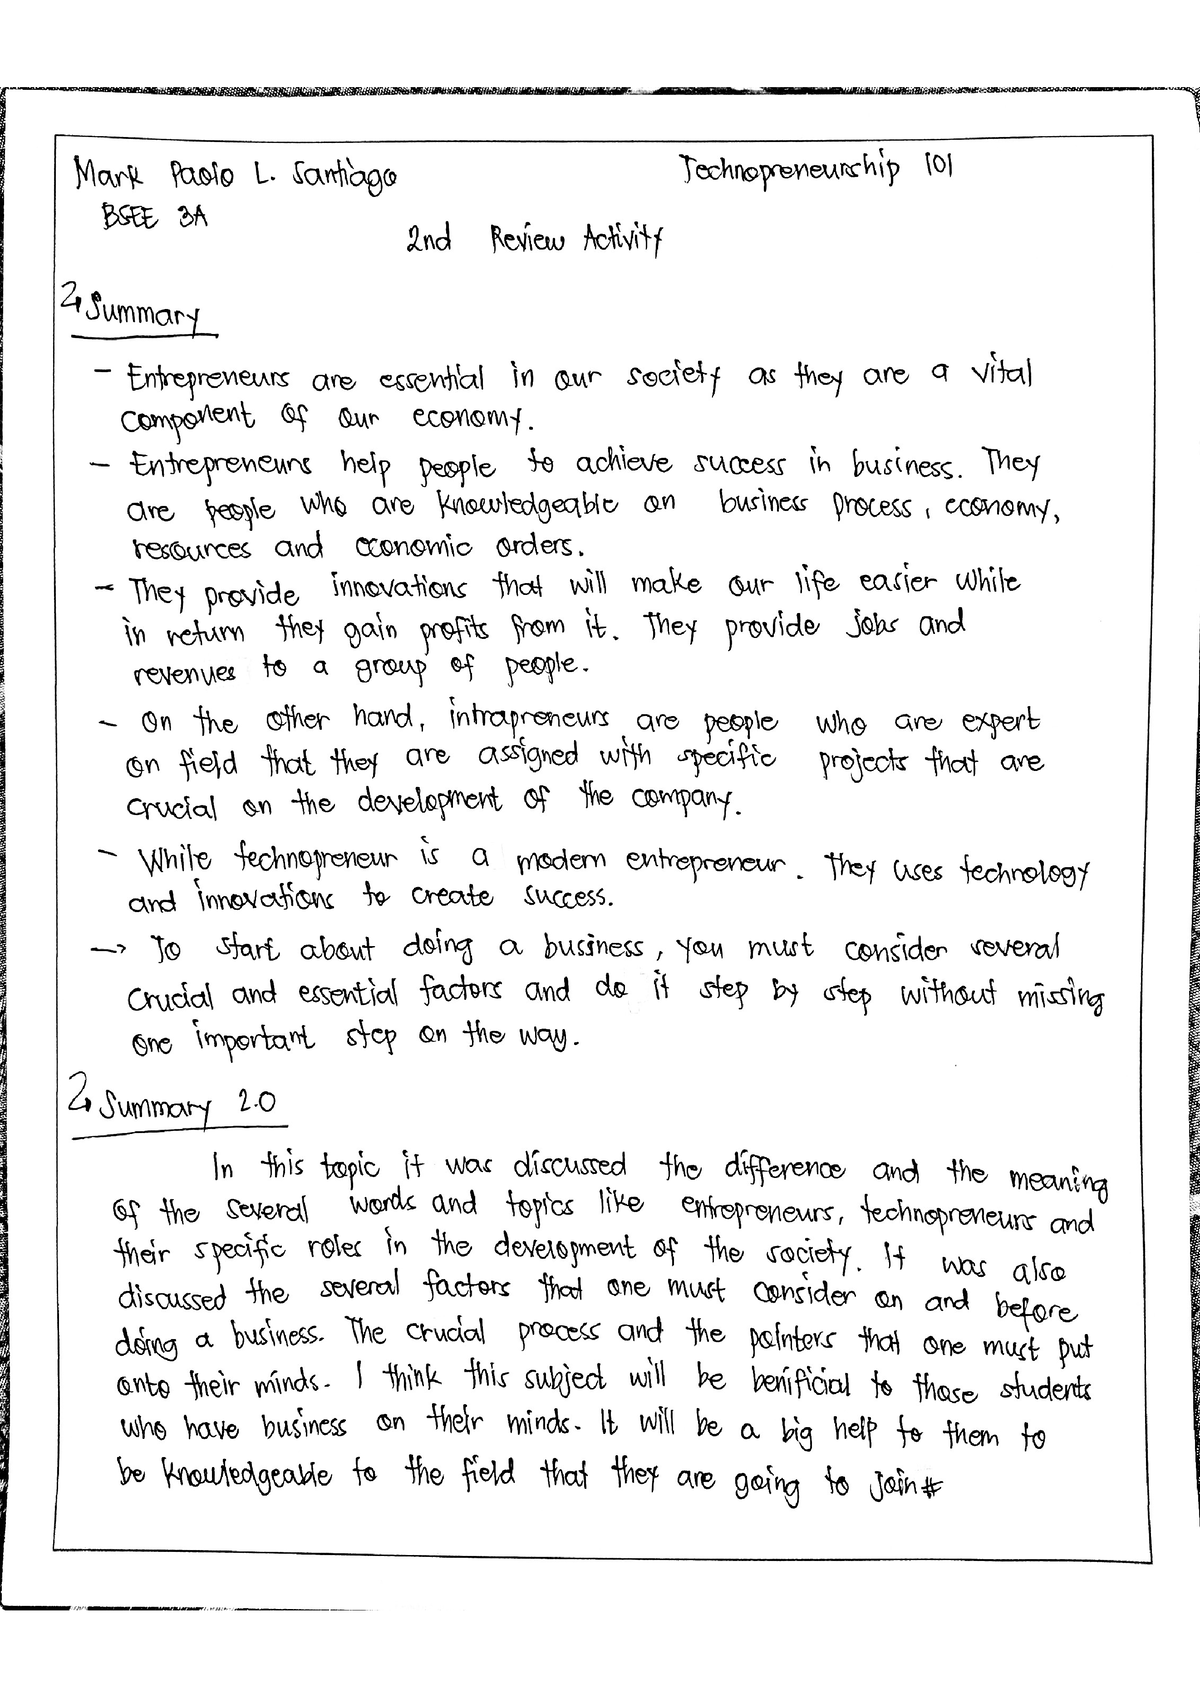 Mark Paolo L. Santiago Technopreneurship 101
BSEE 3A
2nd Review Activity
Summary
- Entrepreneurs are essential in our society as they are a vital
component of our economy.
- Entrepreneurs help people to achieve success in business. They
are people who are knowledgeable on business process, economy,
resources and economic orders.
- They provide innovations that will make our life easier while
in return they gain profits from it. They provide jobs and
revenues to a group of people.
- On the other hand, intrapreneurs are people who are expert
on field that they are assigned with specific projects that are
crucial on the development of the company.
- While technopreneur is a modern entrepreneur. They uses technology
and innovations to create success.
-> To start about doing a business, you must consider several
crucial and essential factors and do it step by step without missing
one important step on the way.
Summary 2.0
In this topic it was discussed the difference and the meaning
of the several words and topics like entrepreneurs, technopreneurs and
their specific roles in the development of the society. It was also
discussed the several factors that one must consider on and before
doing a business. The crucial process and the pointers that one must put
onto their minds. I think this subject will be benificial to those students
who have business on their minds. It will be a big help to them to
be knowledgeable to the field that they are going to join#